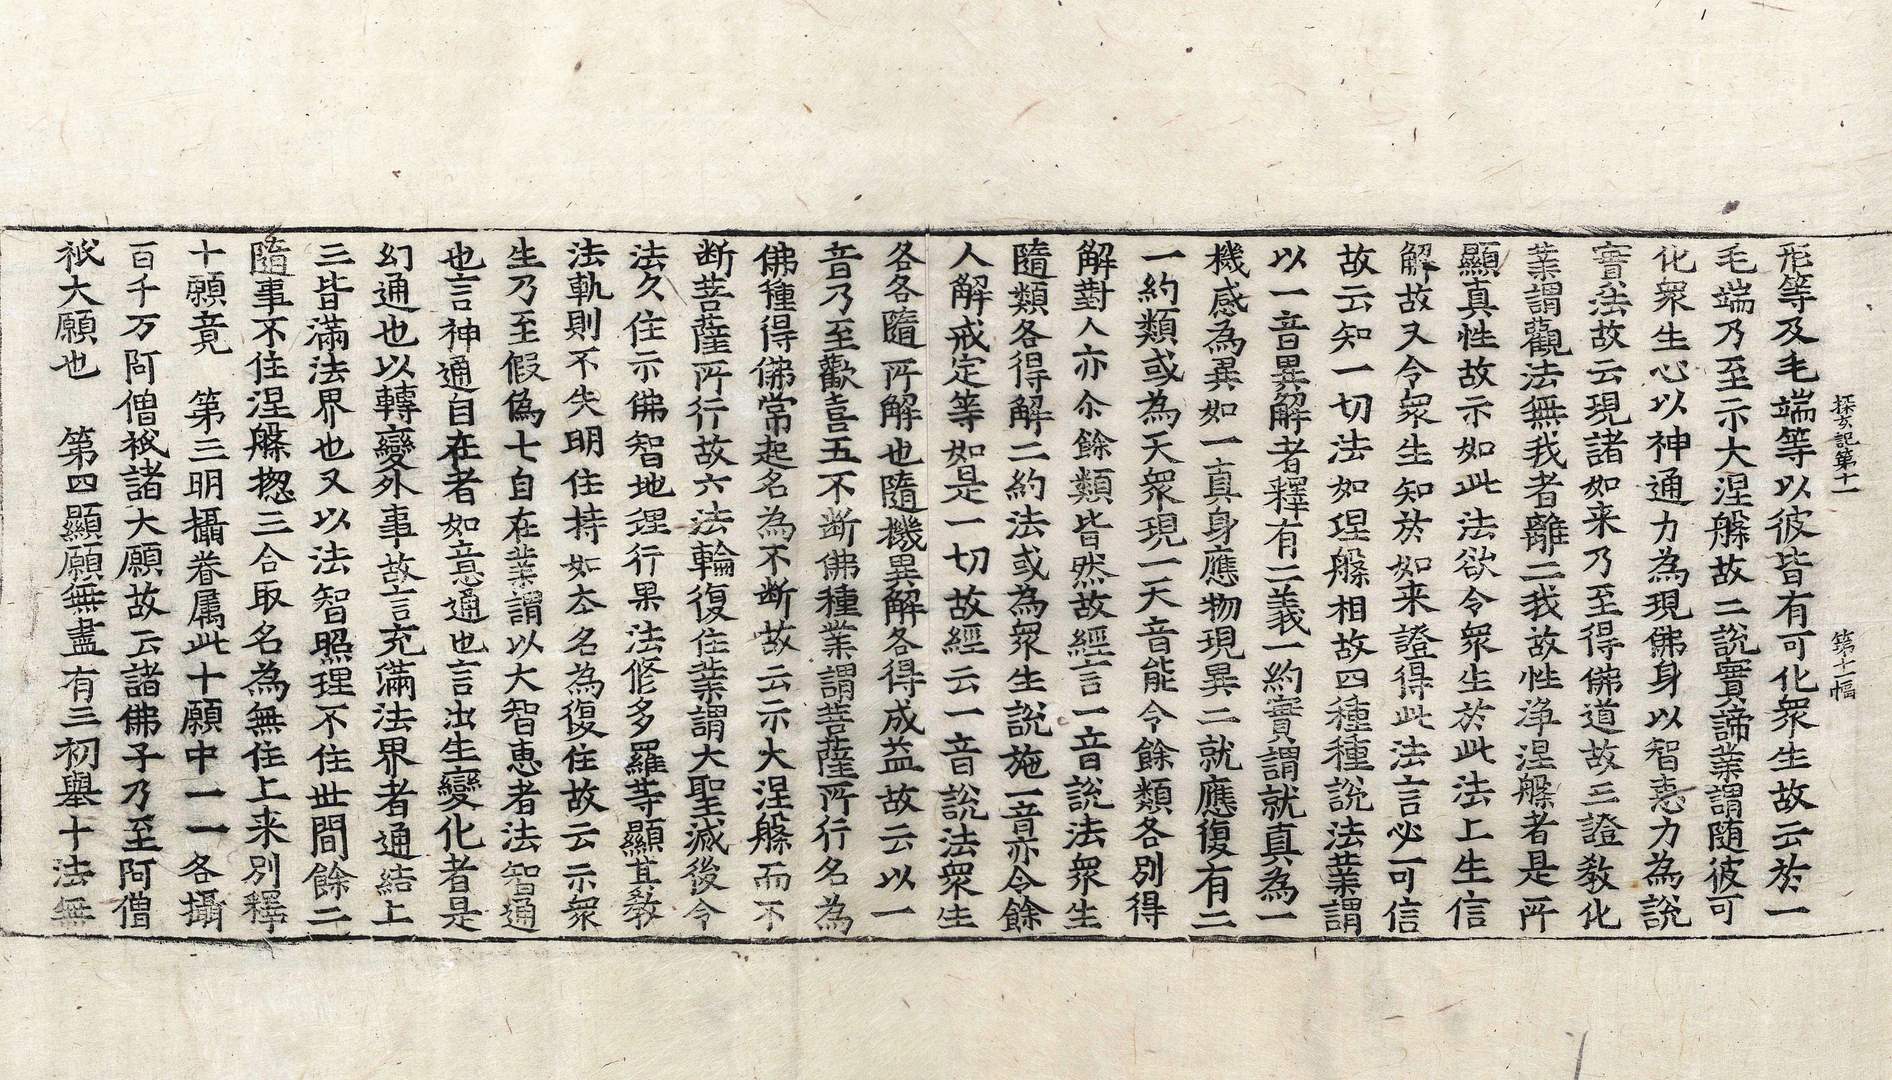 探玄記第十一 第十一幅
形等及毛端等以彼皆有可化衆生故云於一
毛端乃至示大涅槃故二說實諦業謂随彼可
化衆生心以神通力為現佛身以智恵力為說
實法故云現諸如来乃至得佛道故三證教化
業謂觀法無我者離二我故性淨涅槃者是所
顯真性故示如此法欲令衆生於此法上生信
解故又令衆生知於如来證得此法言必可信
故云知一切法如涅槃相故四種種說法業謂
以一音異解者釋有二義一約實謂就真為一
機感為異如一真身應物現異二就應復有二
一約類或為天衆現一天音能令餘類各別得
解對人亦尒餘類皆然故經言一音說法衆生
隨類各得解二約法或為衆生說施一音亦令餘
人解戒定等如是一切故經云一音說法衆生
各各隨所解也隨機異解各得成益故云以一
音乃至歡喜五不断佛種業謂菩薩所行名為
佛種得佛常起名為不断故云示大涅槃而不
断菩薩所行故六法輪復住業謂大聖滅後令
法久住示佛智地理行果法修多羅等顯其教
法軌則不失明住持如本名為復住故云示衆
生乃至假偽七自在業謂以大智恵者法智通
也言神通自在者如意通也言出生變化者是
幻通也以轉變外事故言充滿法界者通結上
三皆滿法界也又以法智照理不住世間餘二
隨事不住涅槃揔三合取名為無住上来別釋
十願竟　第三明攝眷属此十願中一一各攝
百千万阿僧祇諸大願故云諸佛子乃至阿僧
祇大願也　第四顯願無盡有三初舉十法無